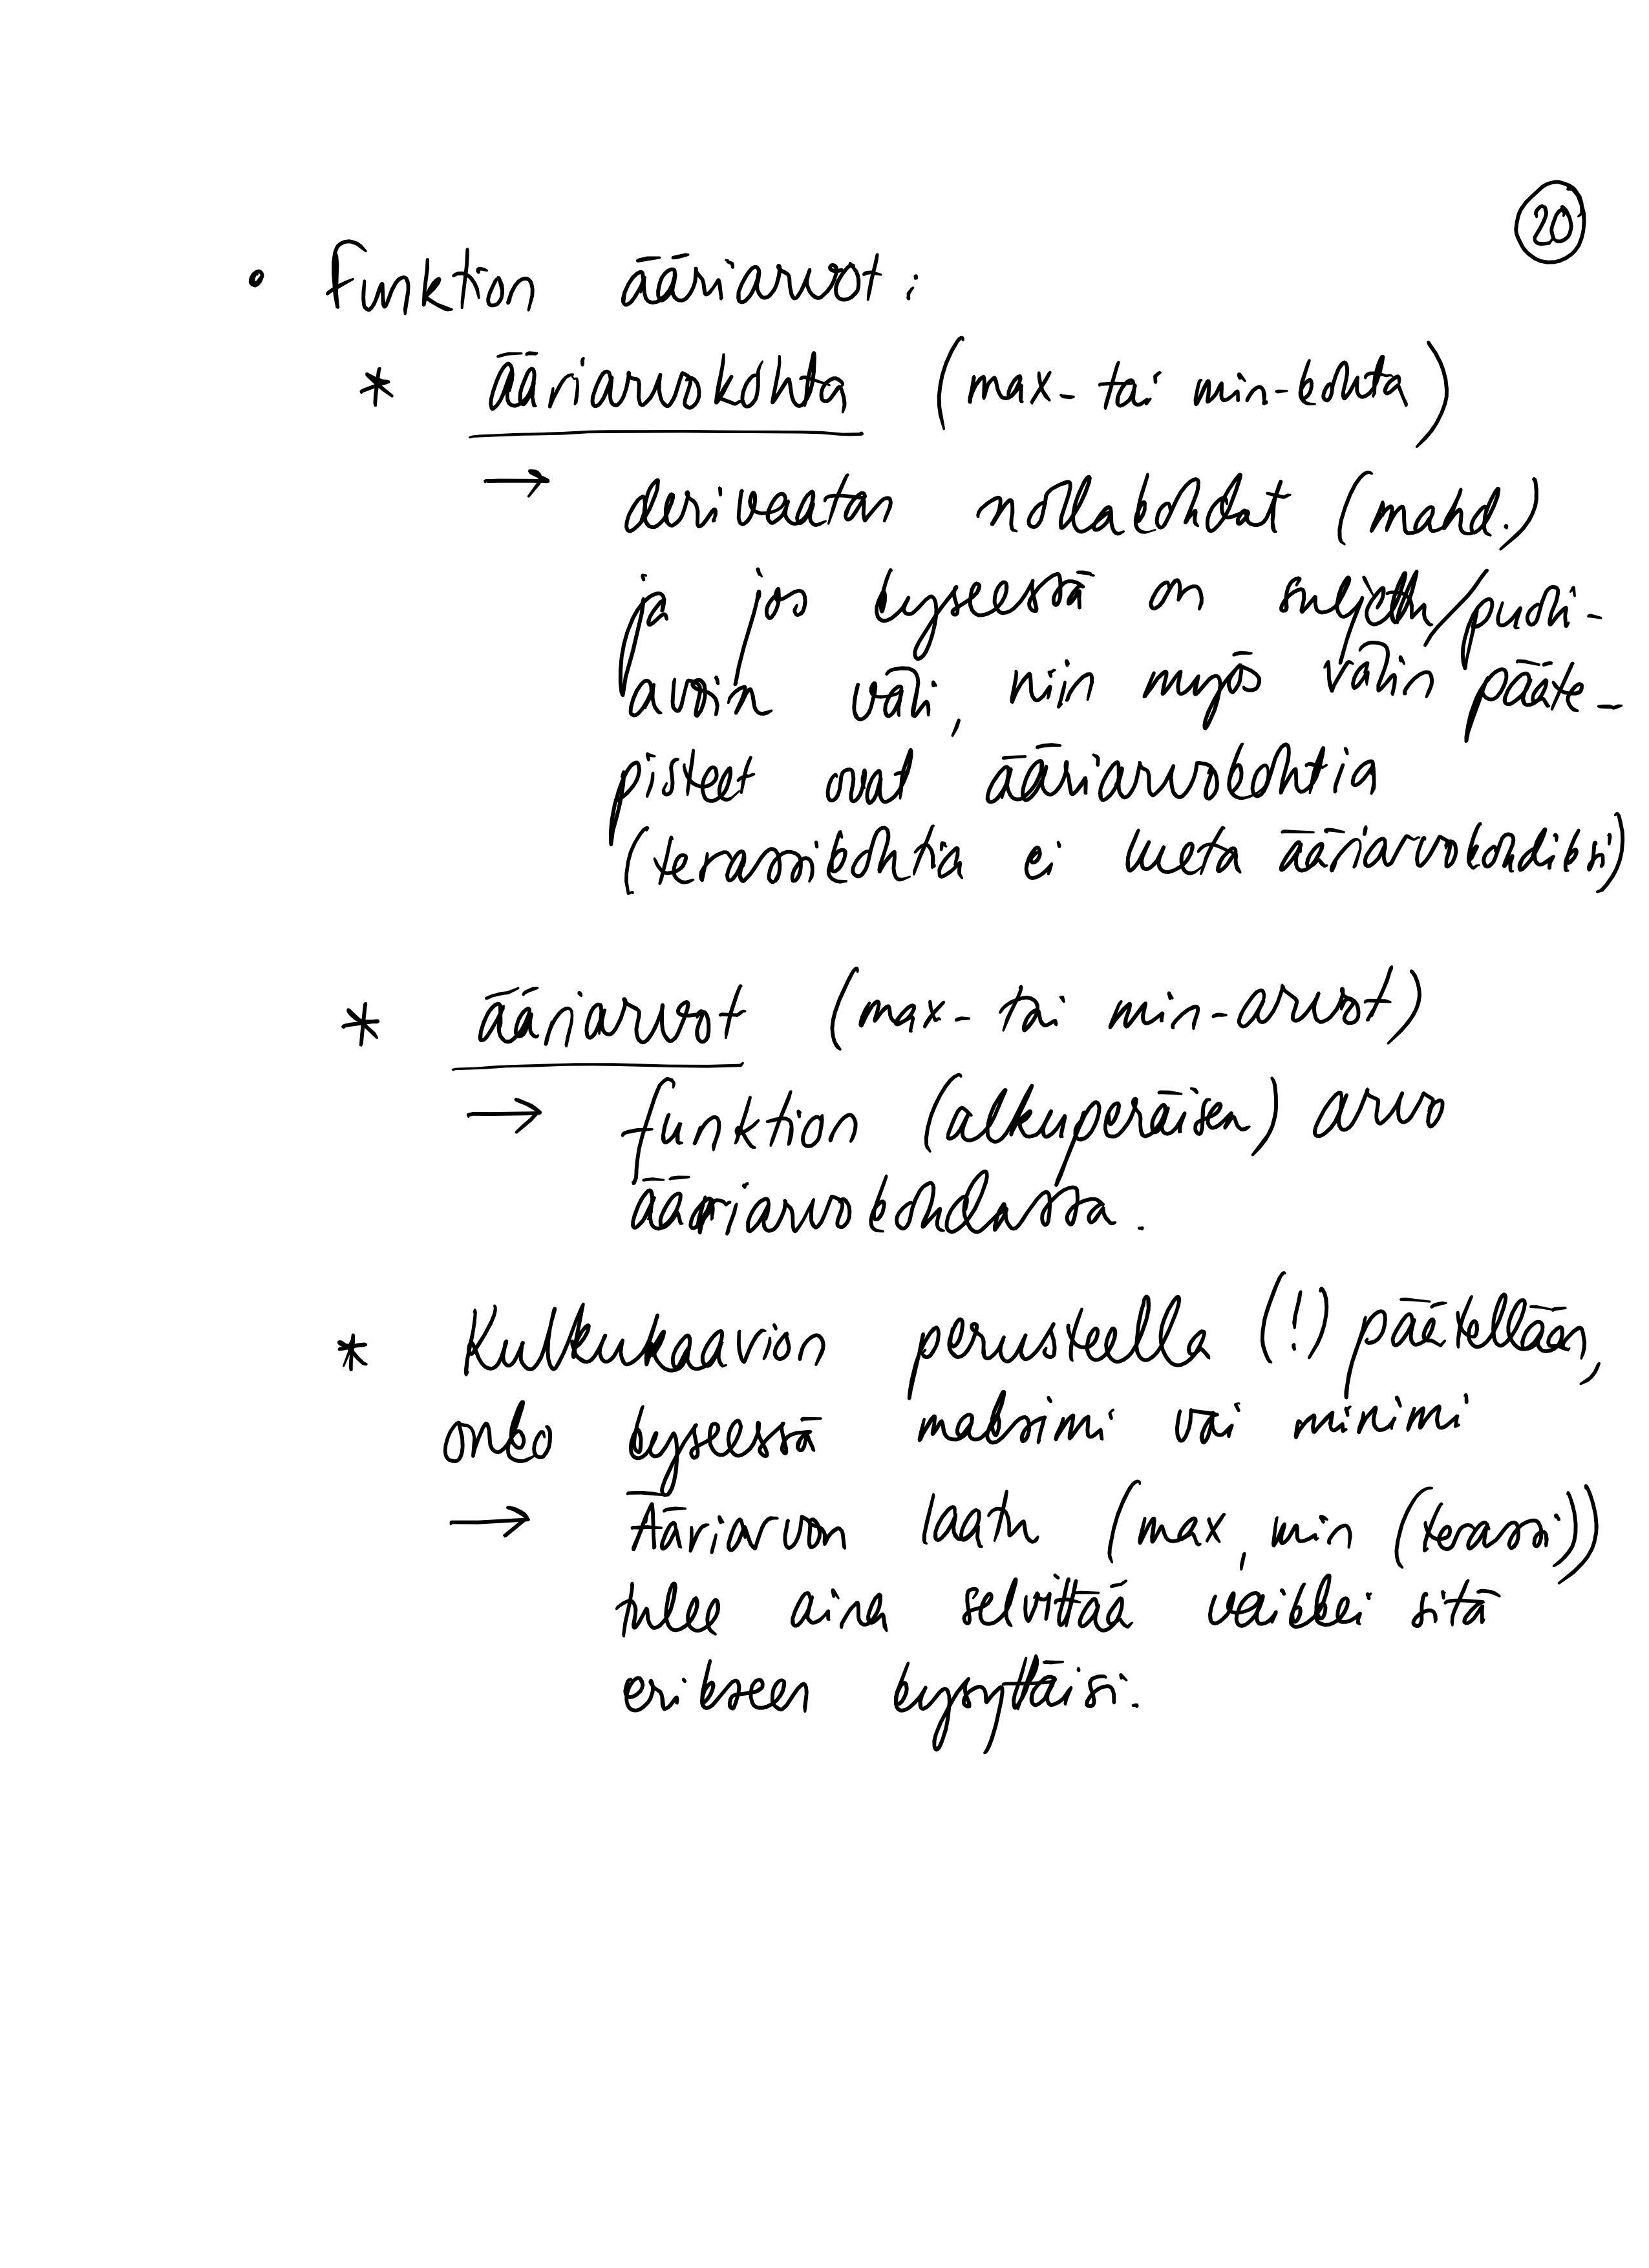 20
• Funktion ääriarvot:
* ääriarvokohta (max- tai min-kohta)
→ derivaatan nollakohdat (mahd.)
ja jos kyseessä on suljettu/puoli-
avoin väli, niin myös välin pääte-
pisteet ovat ääriarvokohtia
(terassikohtia ei lueta ääriarvokohdiksi)
* ääriarvot (max- tai min-arvot)
→ funktion (alkuperäisen) arvo
ääriarvokohdassa.
* Kulkukaavion perusteella (!) päätellään,
onko kyseessä maksimi vai minimi
→ Ääriarvon laatu (max, min (terassi))
tulee aina selvittää vaikkei sitä
erikseen kysyttäisi.